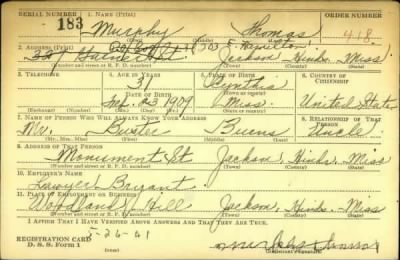 SERIAL NUMBER 1. NAME (Print) ORDER NUMBER
183 Murphy Thomas 418
2. ADDRESS (Print) 703 Hamilton
Jackson Hinds Miss
(Number and street or R. F. D. number) (Town) (County) (State)
3. TELEPHONE 4. AGE IN YEARS 5. PLACE OF BIRTH 6. COUNTRY OF CITIZENSHIP
31 Pynthia
DATE OF BIRTH
Feb. 23 1909 Miss United States
(Exchange) (Number) (Mo.) (Day) (Yr.) (State or country)
7. NAME OF PERSON WHO WILL ALWAYS KNOW YOUR ADDRESS 8. RELATIONSHIP OF THAT PERSON
Mr. Buster Burns Uncle
(Mr., Mrs., Miss) (First) (Middle) (Last)
9. ADDRESS OF THAT PERSON
Monument St Jackson, Hinds, Miss
(Number and street or R. F. D. number) (Town) (County) (State)
10. EMPLOYER'S NAME
Lawyer Bryant
11. PLACE OF EMPLOYMENT OR BUSINESS
Woodland Hill Jackson, Hinds, Miss
(Number and street or R. F. D. number) (Town) (County) (State)
I AFFIRM THAT I HAVE VERIFIED ABOVE ANSWERS AND THAT THEY ARE TRUE.
REGISTRATION CARD 5-26-41
D. S. S. Form 1
(Registrant's signature)